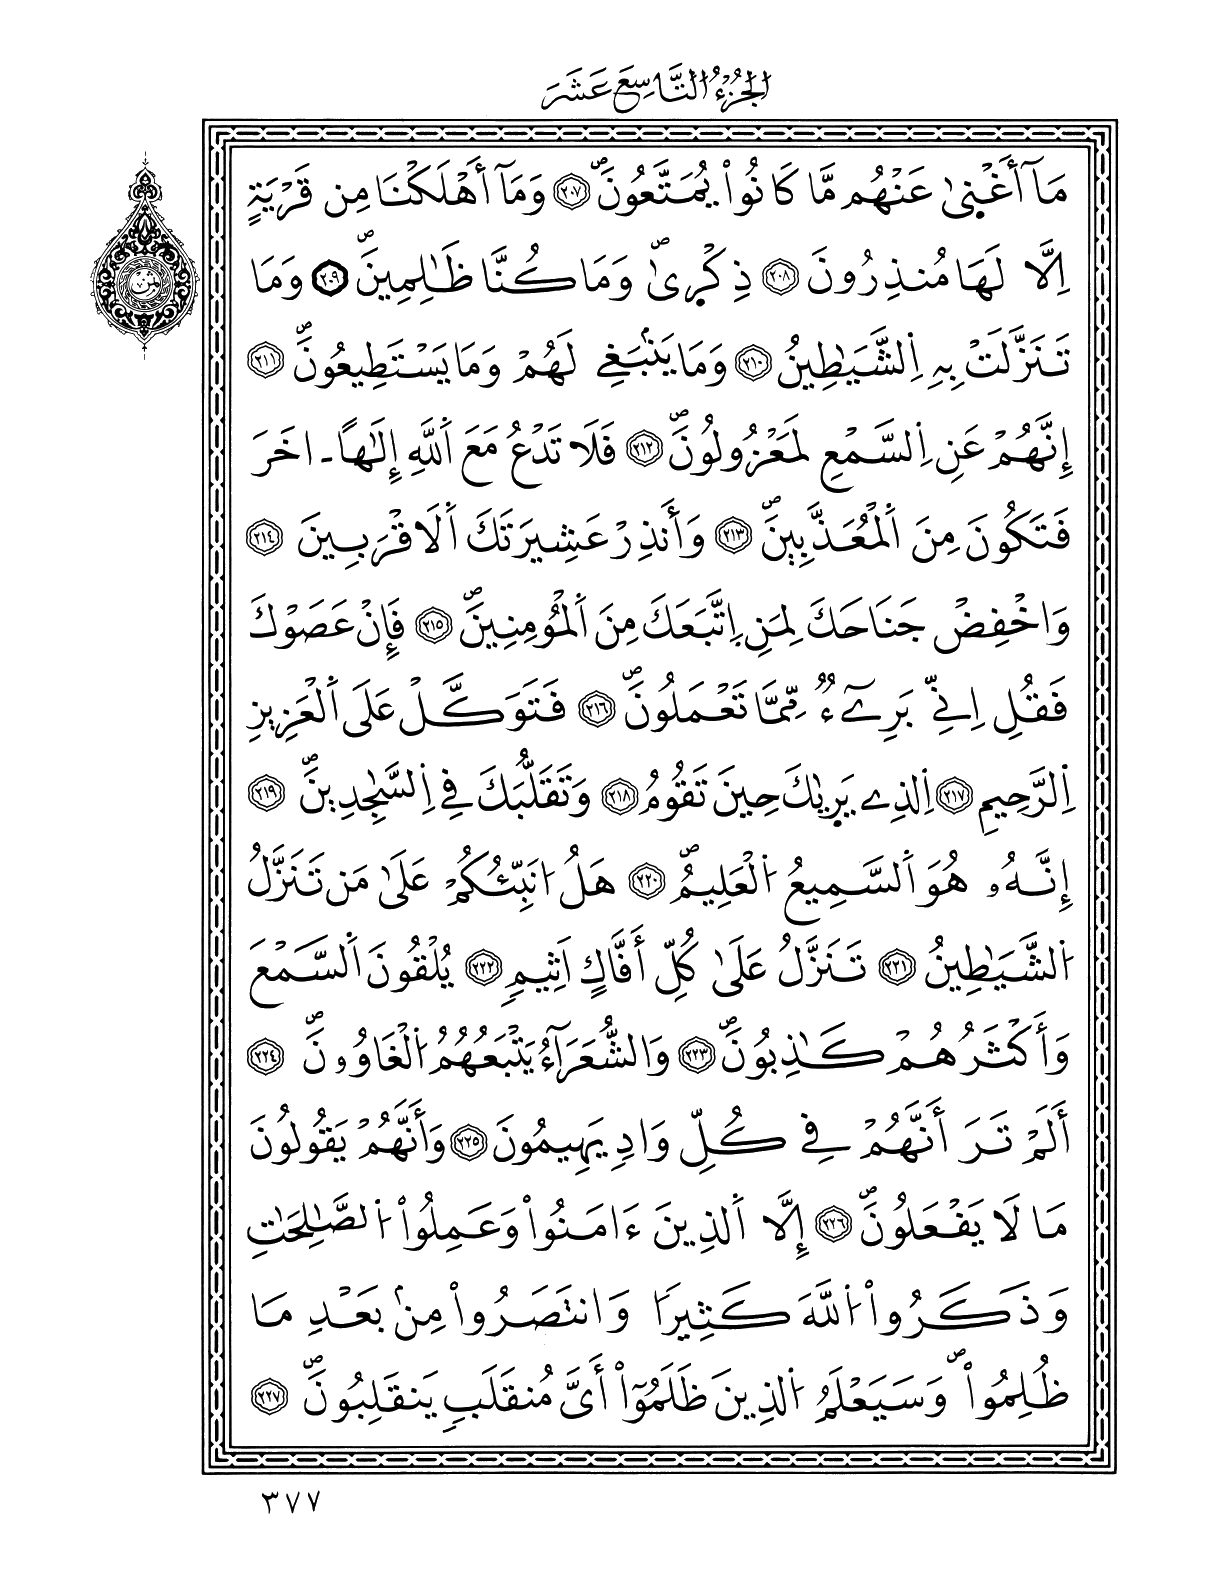 الجزء التاسع عشر
مَآ أَغْن۪ىٰ عَنْهُم مَّا كَانُواْ يُمَتَّعُونَۖ ٢٠٧ وَمَآ أَهْلَكْنَا مِن قَرْيَةٍ
اِلَّا لَهَا مُنذِرُونَ ٢٠٨ ذِكْر۪ىٰۖ وَمَا كُنَّا ظَٰلِمِينَۖ ٢٠٩ وَمَا
تَنَزَّلَتْ بِهِ اِ۬لشَّيَٰطِينُ ٢١٠ وَمَا يَنۢبَغِے لَهُمْ وَمَا يَسْتَطِيعُونَۖ ٢١١
إِنَّهُمْ عَنِ اِ۬لسَّمْعِ لَمَعْزُولُونَۖ ٢١٢ فَلَا تَدْعُ مَعَ اَ۬للَّهِ إِلَٰهاً ـ اخَرَ
فَتَكُونَ مِنَ اَ۬لْمُعَذَّبِينَۖ ٢١٣ وَأَنذِرْ عَشِيرَتَكَ اَ۬لَاقْرَبِينَ ٢١٤
وَاخْفِضْ جَنَاحَكَ لِمَنِ اِ۪تَّبَعَكَ مِنَ اَ۬لْمُومِنِينَۖ ٢١٥ فَإِنْ عَصَوْكَ
فَقُلِ اِنِّے بَرِےٓءٞ مِّمَّا تَعْمَلُونَۖ ٢١٦ فَتَوَكَّلْ عَلَى اَ۬لْعَزِيزِ
اِ۬لرَّحِيمِ ٢١٧ اِ۬لذِے يَر۪يٰكَ حِينَ تَقُومُ ٢١٨ وَتَقَلُّبَكَ فِے اِ۬لسَّٰجِدِينَۖ ٢١٩
إِنَّهُۥ هُوَ اَ۬لسَّمِيعُ اُ۬لْعَلِيمُۖ ٢٢٠ هَلُ ا۟نَبِّئُكُمْ عَلَىٰ مَن تَنَزَّلُ
اُ۬لشَّيَٰطِينُ ٢٢١ تَنَزَّلُ عَلَىٰ كُلِّ أَفَّاكٍ اَثِيمٍ ٢٢٢ يُلْقُونَ اَ۬لسَّمْعَ
وَأَكْثَرُهُمْ كَٰذِبُونَۖ ٢٢٣ وَالشُّعَرَآءُ يَتْبَعُهُمُ اُ۬لْغَاوُۥنَۖ ٢٢٤
أَلَمْ تَرَ أَنَّهُمْ فِے كُلِّ وَادٍ يَهِيمُونَ ٢٢٥ وَأَنَّهُمْ يَقُولُونَ
مَا لَا يَفْعَلُونَۖ ٢٢٦ إِلَّا اَ۬لذِينَ ءَامَنُواْ وَعَمِلُواْ اُ۬لصَّٰلِحَٰتِ
وَذَكَرُواْ اُ۬للَّهَ كَثِيراٗ وَانتَصَرُواْ مِنۢ بَعْدِ مَا
ظُلِمُواْۖ وَسَيَعْلَمُ اُ۬لذِينَ ظَلَمُوٓاْ أَىَّ مُنقَلَبٖ يَنقَلِبُونَۖ ٢٢٧
٣٧٧